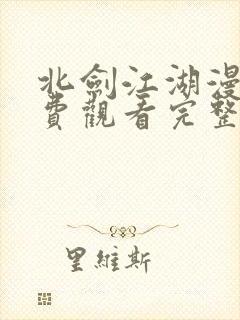 北劍江湖漫
費觀看完整
里維斯